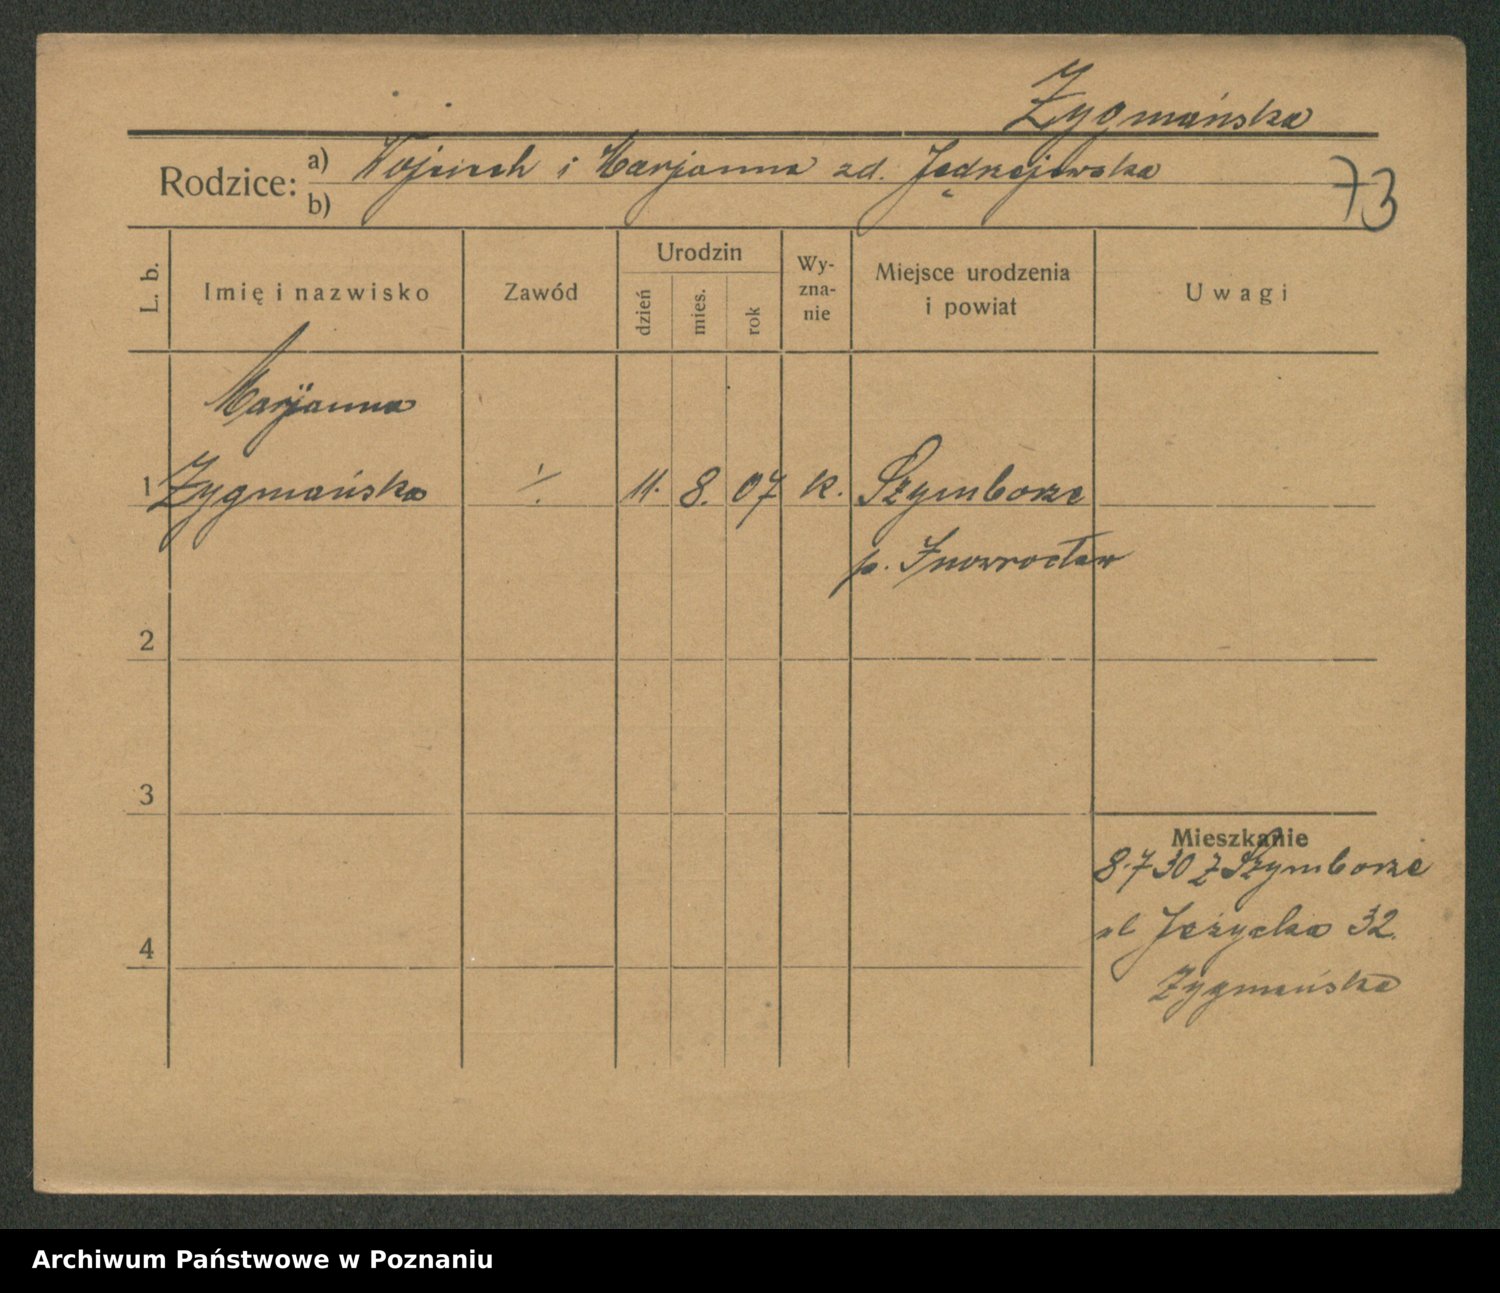 Zygmańska
Rodzice: a) Wojciech i Marjanna zd. Jędrzejewska
b)
73
L. b.
Imię i nazwisko
Zawód
Urodzin
dzień
mies.
rok
Wy-
zna-
nie
Miejsce urodzenia
i powiat
Uwagi
Marjanna
1 Zygmańska 11. 8. 07 k. Szymborze
p. Inowrocław
2
3
Mieszkanie
8.7 30 z Szymborze
ul Jeżycka 32.
4
Zygmańska
Archiwum Państwowe w Poznaniu